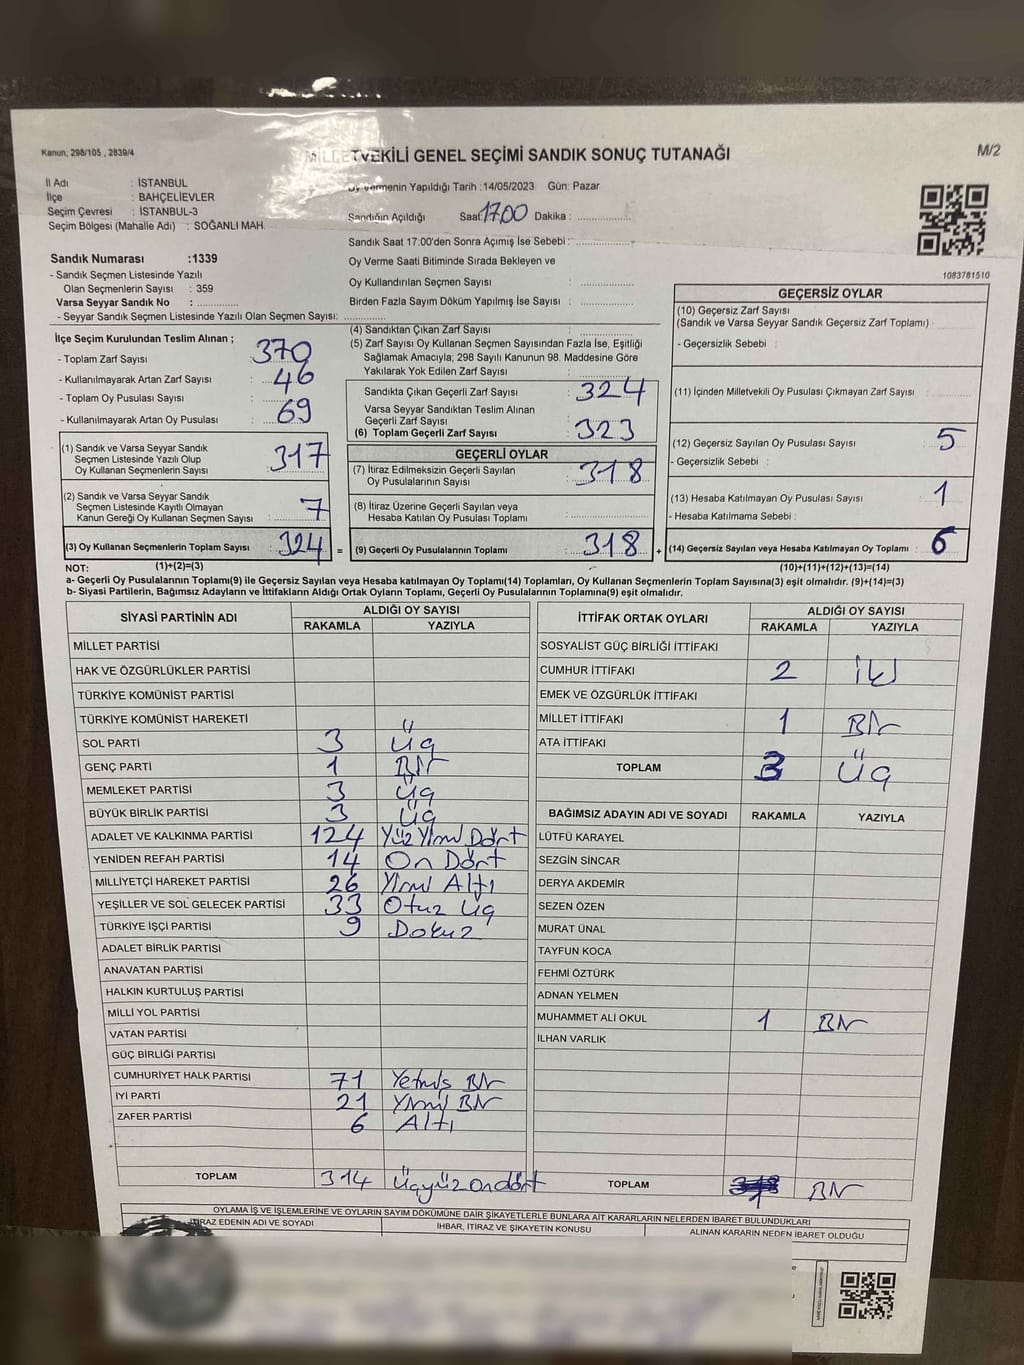 Kanun, 298/105 , 2839/4
MİLLETVEKİLİ GENEL SEÇİMİ SANDIK SONUÇ TUTANAĞI
M/2
İl Adı : İSTANBUL
İlçe : BAHÇELİEVLER
Seçim Çevresi : İSTANBUL-3
Seçim Bölgesi (Mahalle Adı) : SOĞANLI MAH.
Oy Vermenin Yapıldığı Tarih :14/05/2023 Gün: Pazar
Sandığın Açıldığı Saat:17.00 Dakika :
Sandık Saat 17:00'den Sonra Açımış İse Sebebi :
Oy Verme Saati Bitiminde Sırada Bekleyen ve
Oy Kullandırılan Seçmen Sayısı :
Birden Fazla Sayım Döküm Yapılmış İse Sayısı :
1083781510
Sandık Numarası :1339
- Sandık Seçmen Listesinde Yazılı
Olan Seçmenlerin Sayısı : 359
Varsa Seyyar Sandık No :
- Seyyar Sandık Seçmen Listesinde Yazılı Olan Seçmen Sayısı:
İlçe Seçim Kurulundan Teslim Alınan ;
- Toplam Zarf Sayısı : 370
- Kullanılmayarak Artan Zarf Sayısı : 46
- Toplam Oy Pusulası Sayısı :
- Kullanılmayarak Artan Oy Pusulası : 69
(1) Sandık ve Varsa Seyyar Sandık
Seçmen Listesinde Yazılı Olup
Oy Kullanan Seçmenlerin Sayısı : 317
(2) Sandık ve Varsa Seyyar Sandık
Seçmen Listesinde Kayıtlı Olmayan
Kanun Gereği Oy Kullanan Seçmen Sayısı : 7
(3) Oy Kullanan Seçmenlerin Toplam Sayısı : 324 =
(4) Sandıktan Çıkan Zarf Sayısı :
(5) Zarf Sayısı Oy Kullanan Seçmen Sayısından Fazla İse, Eşitliği
Sağlamak Amacıyla; 298 Sayılı Kanunun 98. Maddesine Göre
Yakılarak Yok Edilen Zarf Sayısı :
Sandıkta Çıkan Geçerli Zarf Sayısı : 324
Varsa Seyyar Sandıktan Teslim Alınan
Geçerli Zarf Sayısı :
(6) Toplam Geçerli Zarf Sayısı : 323
GEÇERLİ OYLAR
(7) İtiraz Edilmeksizin Geçerli Sayılan
Oy Pusulalarının Sayısı : 318
(8) İtiraz Üzerine Geçerli Sayılan veya
Hesaba Katılan Oy Pusulası Toplamı :
(9) Geçerli Oy Pusulalarının Toplamı : 318 +
GEÇERSİZ OYLAR
(10) Geçersiz Zarf Sayısı
(Sandık ve Varsa Seyyar Sandık Geçersiz Zarf Toplamı)
- Geçersizlik Sebebi :
(11) İçinden Milletvekili Oy Pusulası Çıkmayan Zarf Sayısı :
(12) Geçersiz Sayılan Oy Pusulası Sayısı : 5
- Geçersizlik Sebebi :
(13) Hesaba Katılmayan Oy Pusulası Sayısı : 1
- Hesaba Katılmama Sebebi :
(14) Geçersiz Sayılan veya Hesaba Katılmayan Oy Toplamı : 6
NOT: (1)+(2)=(3) (10)+(11)+(12)+(13)=(14)
a- Geçerli Oy Pusulalarının Toplamı(9) ile Geçersiz Sayılan veya Hesaba katılmayan Oy Toplamı(14) Toplamları, Oy Kullanan Seçmenlerin Toplam Sayısına(3) eşit olmalıdır. (9)+(14)=(3)
b- Siyasi Partilerin, Bağımsız Adayların ve İttifakların Aldığı Ortak Oyların Toplamı, Geçerli Oy Pusulalarının Toplamına(9) eşit olmalıdır.
SİYASİ PARTİNİN ADI ALDIĞI OY SAYISI
RAKAMLA YAZIYLA
MİLLET PARTİSİ
HAK VE ÖZGÜRLÜKLER PARTİSİ
TÜRKİYE KOMÜNİST PARTİSİ
TÜRKİYE KOMÜNİST HAREKETİ
SOL PARTİ 3 Üç
GENÇ PARTİ 1 Bir
MEMLEKET PARTİSİ 3 Üç
BÜYÜK BİRLİK PARTİSİ 3 Üç
ADALET VE KALKINMA PARTİSİ 124 Yüz Yirmi Dört
YENİDEN REFAH PARTİSİ 14 On Dört
MİLLİYETÇİ HAREKET PARTİSİ 26 Yirmi Altı
YEŞİLLER VE SOL GELECEK PARTİSİ 33 Otuz Üç
TÜRKİYE İŞÇİ PARTİSİ 9 Dokuz
ADALET BİRLİK PARTİSİ
ANAVATAN PARTİSİ
HALKIN KURTULUŞ PARTİSİ
MİLLİ YOL PARTİSİ
VATAN PARTİSİ
GÜÇ BİRLİĞİ PARTİSİ
CUMHURİYET HALK PARTİSİ 71 Yetmiş Bir
İYİ PARTİ 21 Yirmi Bir
ZAFER PARTİSİ 6 Altı
TOPLAM 314 Üçyüz ondört
İTTİFAK ORTAK OYLARI ALDIĞI OY SAYISI
RAKAMLA YAZIYLA
SOSYALİST GÜÇ BİRLİĞİ İTTİFAKI
CUMHUR İTTİFAKI 2 İki
EMEK VE ÖZGÜRLÜK İTTİFAKI
MİLLET İTTİFAKI 1 Bir
ATA İTTİFAKI
TOPLAM 3 Üç
BAĞIMSIZ ADAYIN ADI VE SOYADI RAKAMLA YAZIYLA
LÜTFÜ KARAYEL
SEZGİN SİNCAR
DERYA AKDEMİR
SEZEN ÖZEN
MURAT ÜNAL
TAYFUN KOCA
FEHMİ ÖZTÜRK
ADNAN YELMEN
MUHAMMET ALİ OKUL 1 Bir
İLHAN VARLIK
TOPLAM 1 Bir
OYLAMA İŞ VE İŞLEMLERİNE VE OYLARIN SAYIM DÖKÜMÜNE DAİR ŞİKAYETLERLE BUNLARA AİT KARARLARIN NELERDEN İBARET BULUNDUKLARI
İTİRAZ EDENİN ADI VE SOYADI İHBAR, İTİRAZ VE ŞİKAYETİN KONUSU ALINAN KARARIN NEDEN İBARET OLDUĞU